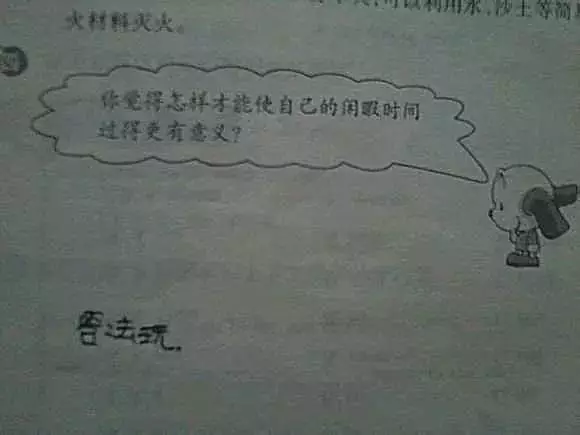 可以利用水、沙土等简
火材料灭火。
你觉得怎样才能使自己的闲暇时间
过得更有意义?
法玩.